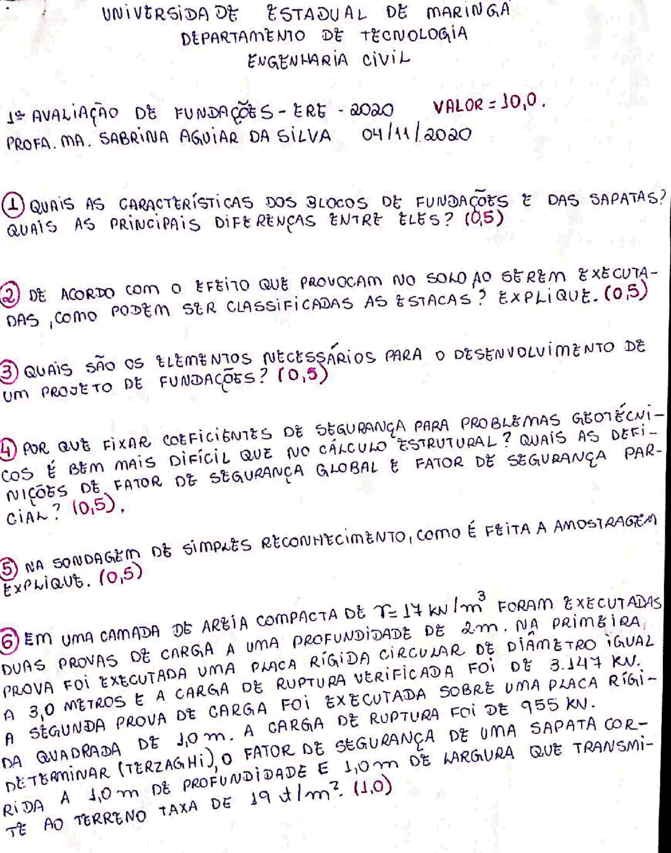 UNIVERSIDADE ESTADUAL DE MARINGÁ
DEPARTAMENTO DE TECNOLOGIA
ENGENHARIA CIVIL
1ª AVALIAÇÃO DE FUNDAÇÕES - ERE - 2020 VALOR = 10,0.
PROFA. MA. SABRINA AGUIAR DA SILVA 04/11/2020
1 QUAIS AS CARACTERÍSTICAS DOS BLOCOS DE FUNDAÇÕES E DAS SAPATAS?
QUAIS AS PRINCIPAIS DIFERENÇAS ENTRE ELES? (0,5)
2 DE ACORDO COM O EFEITO QUE PROVOCAM NO SOLO AO SEREM EXECUTA-
DAS, COMO PODEM SER CLASSIFICADAS AS ESTACAS? EXPLIQUE. (0,5)
3 QUAIS SÃO OS ELEMENTOS NECESSÁRIOS PARA O DESENVOLVIMENTO DE
UM PROJETO DE FUNDAÇÕES? (0,5)
4 POR QUE FIXAR COEFICIENTES DE SEGURANÇA PARA PROBLEMAS GEOTÉCNI-
COS É BEM MAIS DIFÍCIL QUE NO CÁLCULO ESTRUTURAL? QUAIS AS DEFI-
NIÇÕES DE FATOR DE SEGURANÇA GLOBAL E FATOR DE SEGURANÇA PAR-
CIAL? (0,5).
5 NA SONDAGEM DE SIMPLES RECONHECIMENTO, COMO É FEITA A AMOSTRAGEM
EXPLIQUE. (0,5)
6 EM UMA CAMADA DE AREIA COMPACTA DE γ= 17 KN/m³ FORAM EXECUTADAS
DUAS PROVAS DE CARGA A UMA PROFUNDIDADE DE 2m. NA PRIMEIRA,
PROVA FOI EXECUTADA UMA PLACA RÍGIDA CIRCULAR DE DIÂMETRO IGUAL
A 3,0 METROS E A CARGA DE RUPTURA VERIFICADA FOI DE 3.147 KN.
A SEGUNDA PROVA DE CARGA FOI EXECUTADA SOBRE UMA PLACA RÍGI-
DA QUADRADA DE 1,0 m. A CARGA DE RUPTURA FOI DE 955 KN.
DETERMINAR (TERZAGHI), O FATOR DE SEGURANÇA DE UMA SAPATA COR-
RIDA A 1,0 m DE PROFUNDIDADE E 1,0 m DE LARGURA QUE TRANSMI-
TE AO TERRENO TAXA DE 19 t/m². (1,0)